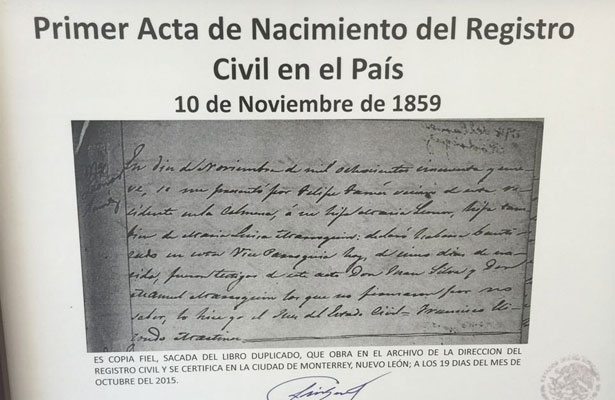 Primer Acta de Nacimiento del Registro
Civil en el País
10 de Noviembre de 1859
de Noviembre de mil ochocientos cincuenta y nue
ve, se me presentó por Felipe Ramós vecino de esta
sidente en la Colmena, á su hija Maria Leonor, hija tam
bien de Maria Luisa Marroquin: declaró haberse bauti
zado en esta Vice Parroquia hoy, de cinco dias de na
cida, fueron testigos de este acto Don Juan Silva y Don
Manuel Marroquin los que no firmaron por no
saber, lo hice yo el Juez del Estado Civil = Francisco
Martinez
ES COPIA FIEL, SACADA DEL LIBRO DUPLICADO, QUE OBRA EN EL ARCHIVO DE LA DIRECCION DEL
REGISTRO CIVIL Y SE CERTIFICA EN LA CIUDAD DE MONTERREY, NUEVO LEÓN; A LOS 19 DIAS DEL MES DE
OCTUBRE DEL 2015.